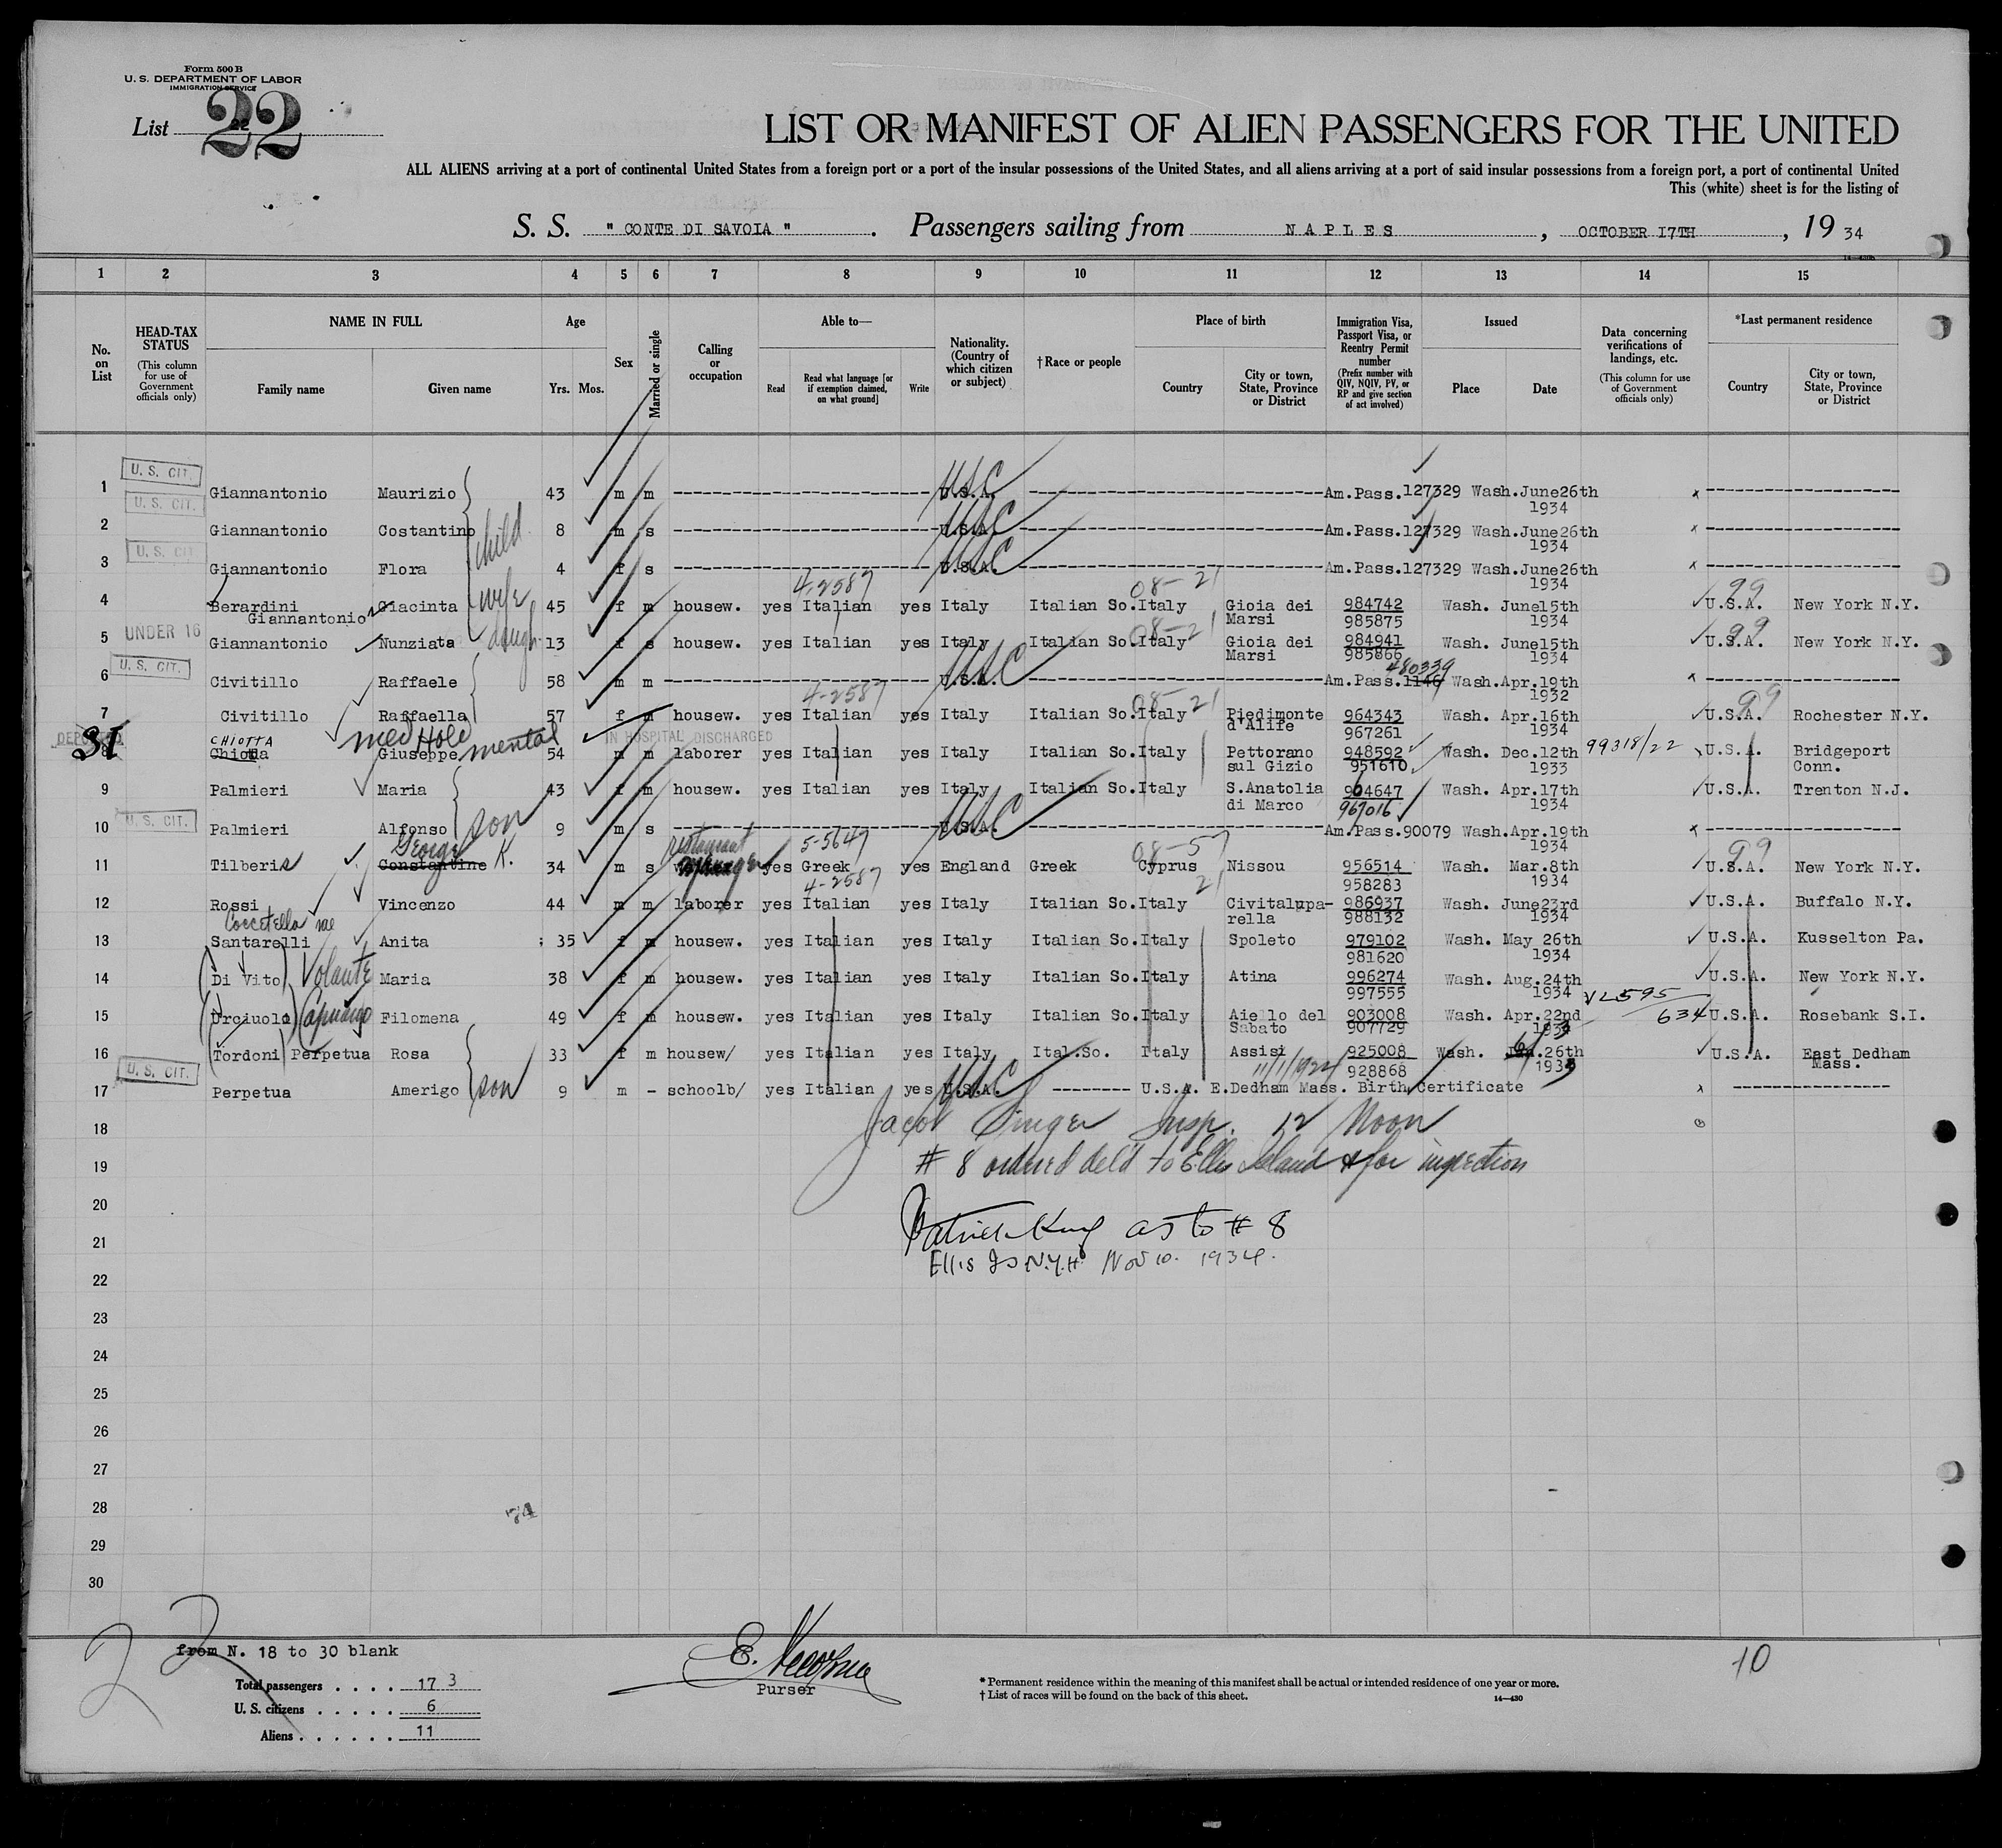 Form 500 B
U. S. DEPARTMENT OF LABOR
IMMIGRATION SERVICE
List 22
LIST OR MANIFEST OF ALIEN PASSENGERS FOR THE UNITED
ALL ALIENS arriving at a port of continental United States from a foreign port or a port of the insular possessions of the United States, and all aliens arriving at a port of said insular possessions from a foreign port, a port of continental United
This (white) sheet is for the listing of
S. S. " CONTE DI SAVOIA " . Passengers sailing from NAPLES , OCTOBER 17TH , 19 34
1 2 3 4 5 6 7 8 9 10 11 12 13 14 15
No. on List
HEAD-TAX STATUS (This column for use of Government officials only)
NAME IN FULL
Family name Given name
Age
Yrs. Mos.
Sex
Married or single
Calling or occupation
Able to—
Read Read what language [or if exemption claimed, on what ground] Write
Nationality. (Country of which citizen or subject)
†Race or people
Place of birth
Country City or town, State, Province or District
Immigration Visa, Passport Visa, or Reentry Permit number (Prefix number with QIV, NQIV, PV, or RP and give section of act involved)
Issued
Place Date
Data concerning verifications of landings, etc. (This column for use of Government officials only)
*Last permanent residence
Country City or town, State, Province or District
U. S. CIT.
1 Giannantonio Maurizio 43 m m U.S.A. USC Am.Pass.127329 Wash.June26th 1934 x
U. S. CIT.
2 Giannantonio Costantino child 8 m s U.S.A. USC Am.Pass.127329 Wash.June26th 1934 x
U. S. CIT
3 Giannantonio Flora 4 f s U.S.A. USC Am.Pass.127329 Wash.June26th 1934 x
4-2587 08-21 99
4 Berardini Giannantonio Giacinta wife 45 f m housew. yes Italian yes Italy Italian So. Italy Gioia dei Marsi 984742 985875 Wash. June15th 1934 U.S.A. New York N.Y.
UNDER 16 08-21 99
5 Giannantonio Nunziata daugh. 13 f s housew. yes Italian yes Italy Italian So. Italy Gioia dei Marsi 984941 985866 Wash. June15th 1934 U.S.A. New York N.Y.
U. S. CIT.
6 Civitillo Raffaele 58 m m U.S.A. USC Am.Pass.1146 480339 Wash.Apr.19th 1932 x
4-2587 08-21 99
7 Civitillo Raffaella 57 f m housew. yes Italian yes Italy Italian So. Italy Piedimonte d'Alife 964343 967261 Wash. Apr.16th 1934 U.S.A. Rochester N.Y.
SI CHIOTTA Med Hold mental IN HOSPITAL DISCHARGED
8 Giuseppe 54 m m laborer yes Italian yes Italy Italian So. Italy Pettorano sul Gizio 948592 951610 Wash. Dec.12th 1933 99318/22 U.S.A. Bridgeport Conn.
9 Palmieri Maria 43 f m housew. yes Italian yes Italy Italian So. Italy S.Anatolia di Marco 964647 967016 Wash. Apr.17th 1934 U.S.A. Trenton N.J.
U. S. CIT.
10 Palmieri Alfonso son 9 m s U.S.A. USC Am.Pass.90079 Wash.Apr.19th 1934 x
George K. restaurant manager 5-5647 08-57 99
11 Tilberis Constantine 34 m s yes Greek yes England Greek Cyprus Nissou 956514 958283 Wash. Mar.8th 1934 U.S.A. New York N.Y.
4-2587 21
12 Rossi Vincenzo 44 m m laborer yes Italian yes Italy Italian So. Italy Civitalupa-rella 986937 988132 Wash. June23rd 1934 U.S.A. Buffalo N.Y.
13 Santarelli Anita 35 f m housew. yes Italian yes Italy Italian So. Italy Spoleto 979102 981620 Wash. May 26th 1934 U.S.A. Kusselton Pa.
14 (Di Vito) Volante Maria 38 f m housew. yes Italian yes Italy Italian So. Italy Atina 996274 997555 Wash. Aug.24th 1934 U.S.A. New York N.Y.
15 Filomena 49 f m housew. yes Italian yes Italy Italian So. Italy Aiello del Sabato 903008 907729 Wash. Apr.22nd VL 595/634 U.S.A. Rosebank S.I.
16 (Tordoni) Perpetua Rosa 33 f m housew/ yes Italian yes Italy Ital.So. Italy Assisi 925008 928868 Wash. 26th 1933 U.S.A. East Dedham Mass.
U. S. CIT. 11/1/1924
17 Perpetua Amerigo son 9 m - schoolb/ yes Italian yes U.S.A. USC U.S.A. E.Dedham Mass. Birth Certificate x
18 Jacob Singer Insp. 12 Noon
19 # 8 ordered del'd to Ellis Island for inspection
20
21 Patrick King as to # 8
22 Ellis Is N.Y.H Nov 10. 1934.
23
24
25
26
27
28
29
30
22
from N. 18 to 30 blank
Total passengers . . . . 17 3
U. S. citizens . . . . . 6
Aliens . . . . . . 11
Purser
*Permanent residence within the meaning of this manifest shall be actual or intended residence of one year or more.
†List of races will be found on the back of this sheet.
14—430
10